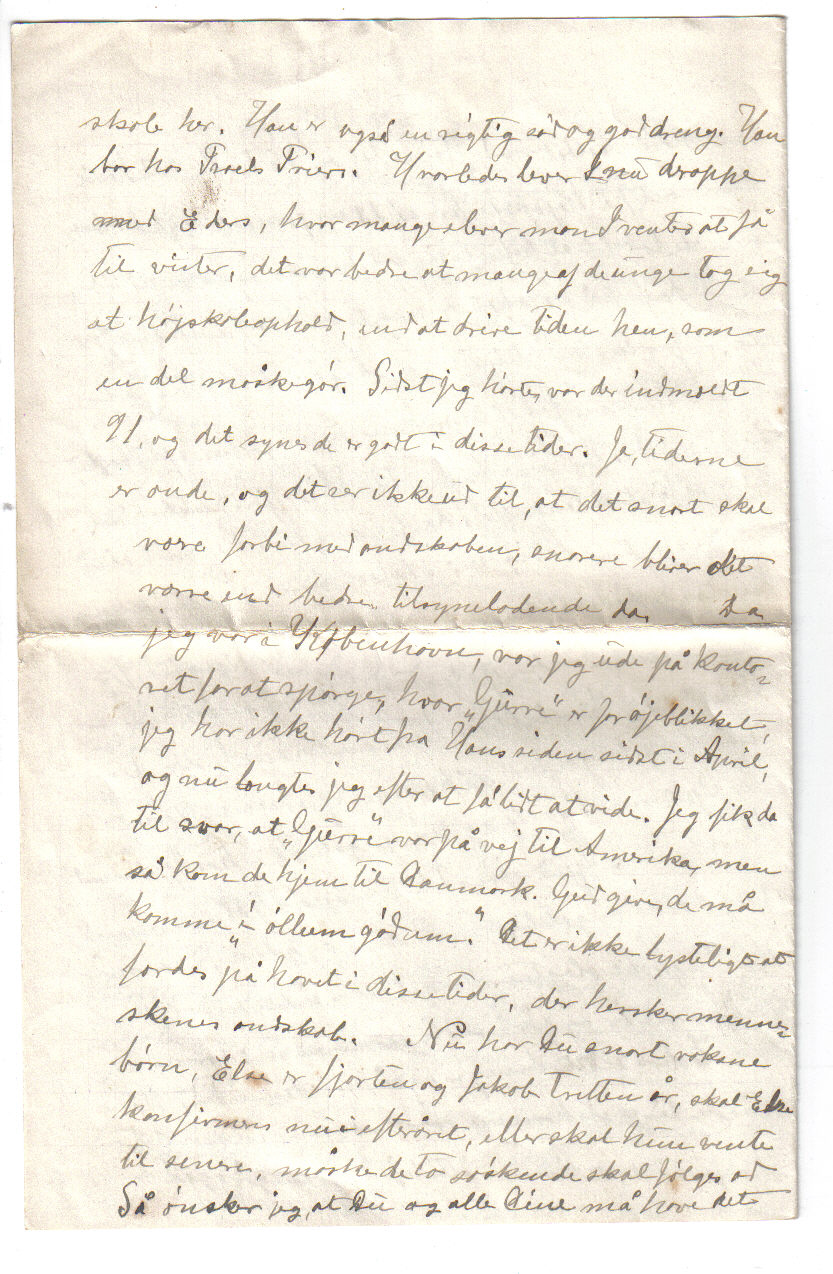 skole her. Han er også en rigtig sød og god dreng. Han
bor hos Troels Friers. Hvorledes lever I nu deroppe
med Eders, hvor mange elever mon I venter at få
til vinter, det var bedre at mange af de unge tog sig
et højskoleophold, end at drive tiden hen, som
en del måske gør. Sidst jeg hørte, var der indmeldt
91, og det synes de er godt i disse tider. Ja, tiderne
er onde, og det ser ikke ud til, at det snart skal
være forbi med ondskaben, snarere bliver det
værre end bedre, tilsyneladende da. Da
jeg var i København, var jeg ude på konto-
ret for at spørge, hvor „Gurre" er for øjeblikket,
jeg har ikke hørt fra Hans siden sidst i April,
og nu længtes jeg efter at få lidt at vide. Jeg fik da
til svar, at „Gurre" var på vej til Amerika, men
så kom de hjem til Danmark. Gud give, de må
komme „i øllum góðum." Det er ikke lysteligt at
færdes på havet i disse tider, der hersker menne-
skenes ondskab. Nu har Du snart voksne
børn, Else er fjorten og Jakob tretten år, skal Else
konfirmeres nu i efteråret, eller skal hun vente
til senere, måske de to søskende skal følges ad
Så ønsker jeg, at Du og alle Dine må have det